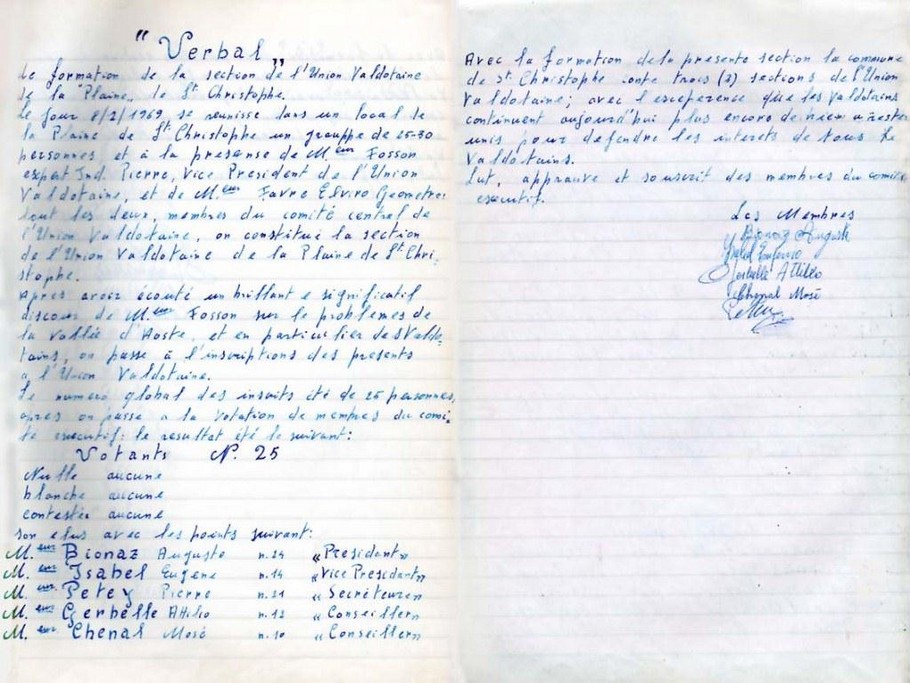 " Verbal "
de formation de la section de l'Union Valdotaine
de la "Plaine" de St Christophe.
Le jour 8/2/1969 se reunisse dars un local de
la Plaine de St Christophe un grouppe de 25-30
personnes et à la presense de M.eur Fosson
expert Ind. Pierre, Vice President de l'Union
Valdotaine, et de M.eur Favre Elviro Geometre:
tout les deux, membres du comité central de
l'Union Valdotaine, on constitui la section
de l'Union Valdotaine de la Plaine de St Chri-
stophe.
apres avoir écouté un brillant e significatif
discour de M.eur Fosson sur le problemes de
la Vallée d'Aoste, et en particulier des Valdo-
tains, on passe à l'inscriptions des presents
a l'Union Valdotaine.
Le numero global des inscrits été de 25 personnes,
apres on passe a la votation de membres du comi-
té executif: le resultat été le suivant:
Votants N. 25
Nulle aucune
blanche aucune
contestée aucune
son elus avec les points suivant:
M.eur Bionaz Auguste n. 24 «President»
M.eur Isabel Eugene n. 14 «Vice President»
M.eur Petey Pierre n. 21 «Secreteure»
M.eur Gerbelle Attilio n. 12 «Conseiller»
M.eur Chenal Mosé n. 10 «Conseiller»
Avec la formation de la presente section la commune
de St Christophe conte trois (3) sections de l'Union
Valdotaine; avec l'esceperence que les Valdotains
continuent aujourd'hui plus encore de hier a rester
unis pour defendre les interets de tous le
Valdôtains.
Lut, approuve et souscrit des membres du comité
esecutif.
Les Membres
Bionaz Auguste
Isabel Eugenio
Gerbelle Attilio
Chenal Mosè